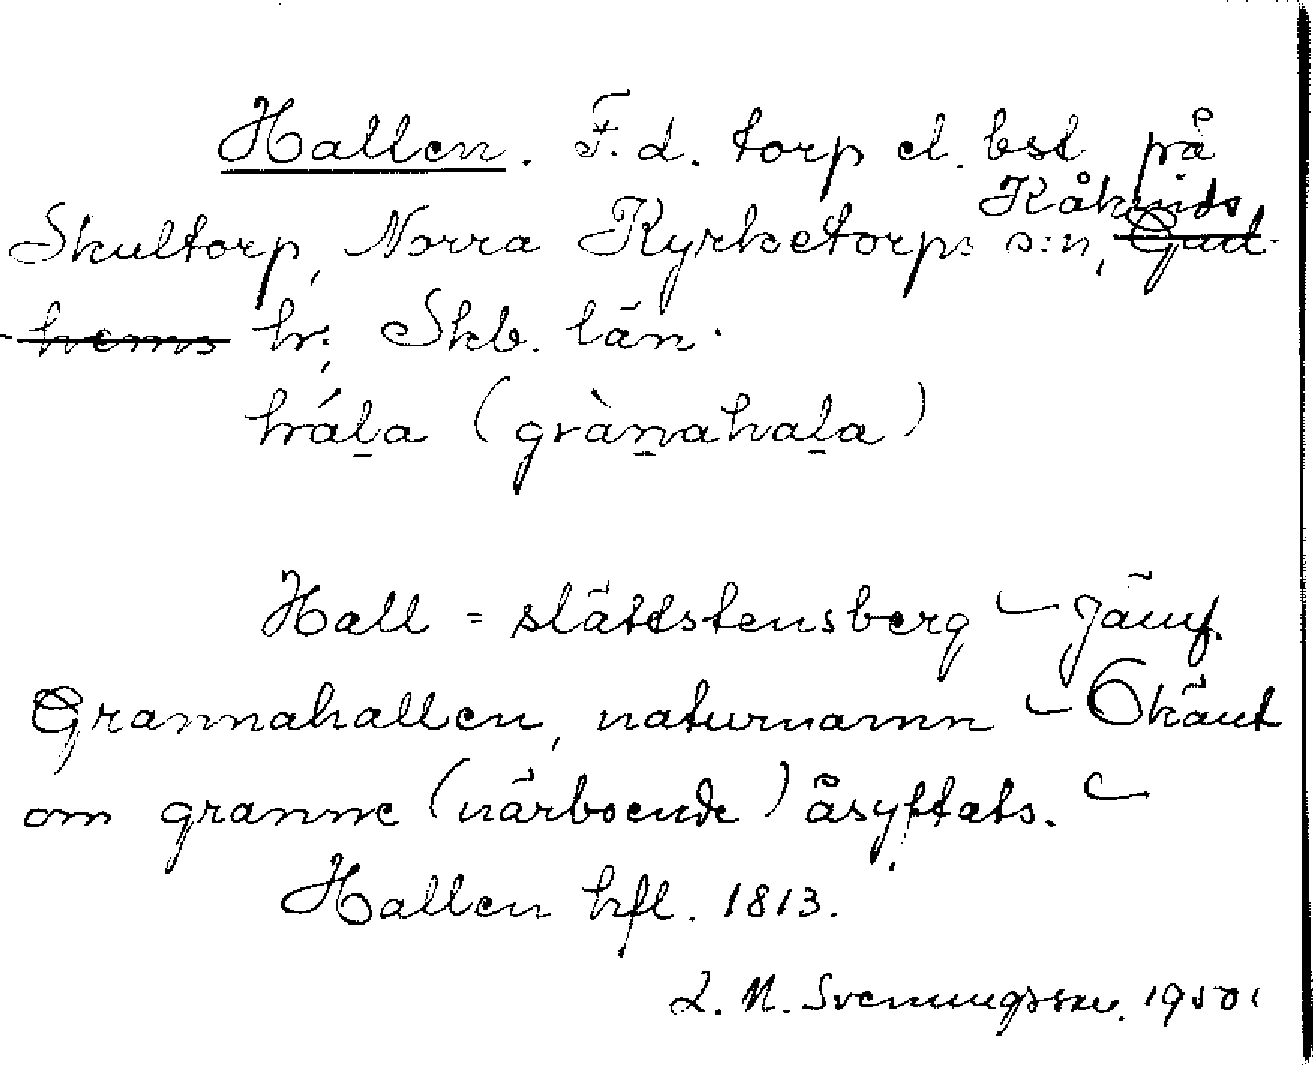 Hallen. F.d. torp el. bst på
Skultorp, Norra Kyrketorps s:n, Kåkinds Gud-
-hems hr; Skb. län.
hála (grànahala)
Hall = slätstensberg - Jämf.
Grannahallen, naturnamn - Okänt
om granne (närboende) åsyftats. -
Hallen hfl. 1813.
L. N. Svenungsson. 1950.